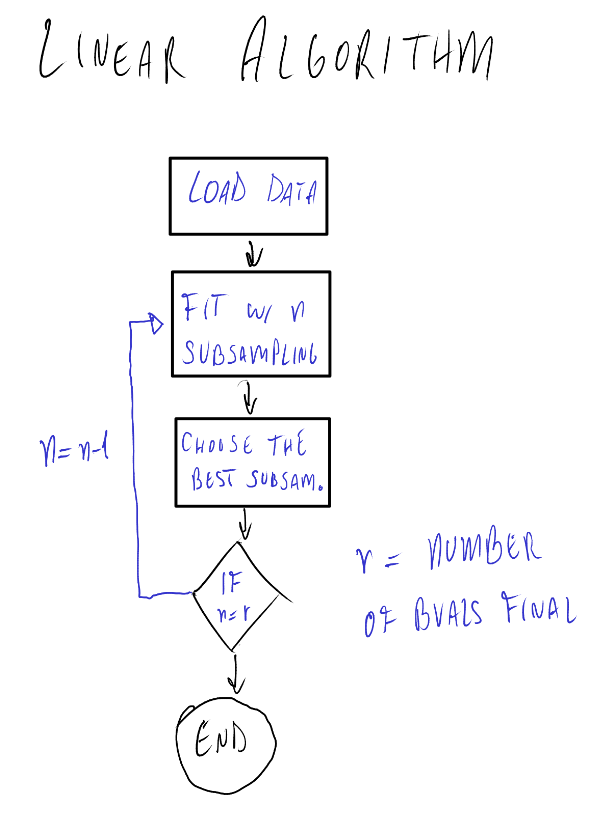 LINEAR ALGORITHM
LOAD DATA
FIT w/ n
SUBSAMPLING
CHOOSE THE
BEST SUBSAM.
n=n-1
IF
n=r
r = NUMBER
OF BVALS FINAL
END